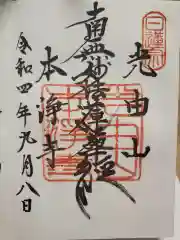 光由山
南無妙法蓮華経
本浄寺
令和四年九月八日